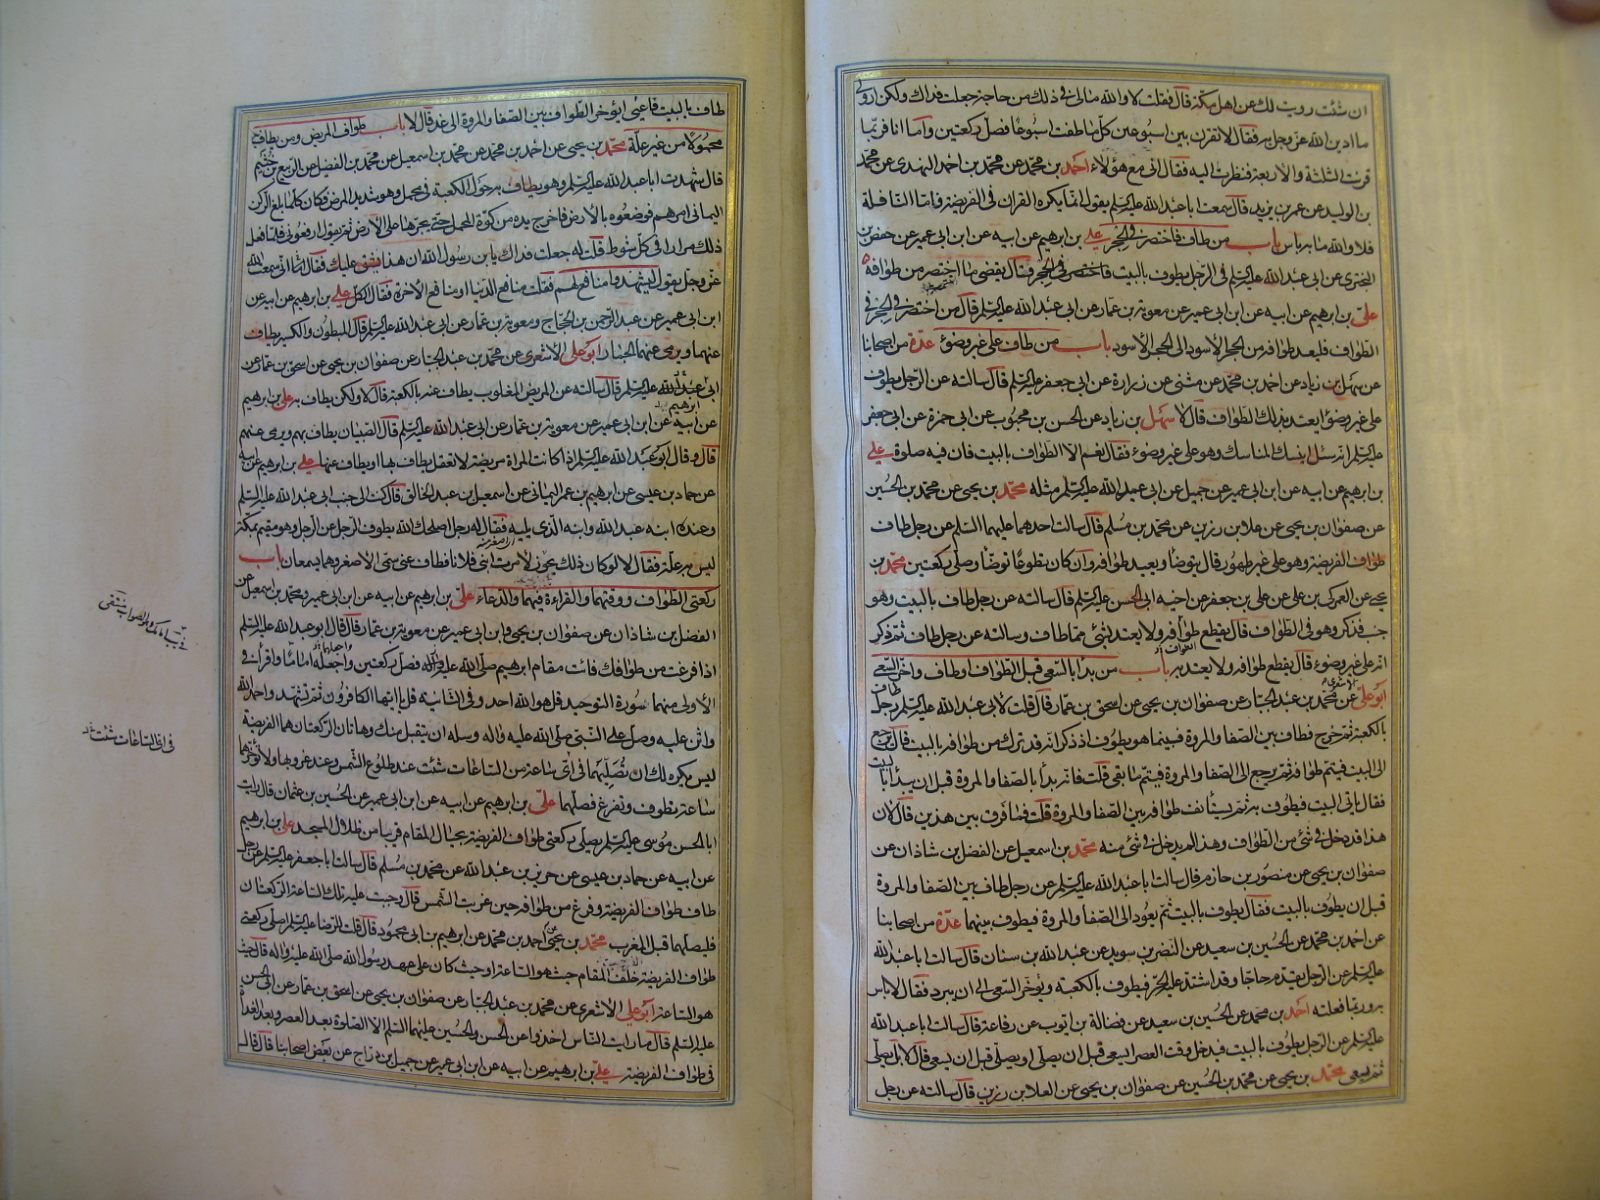 ان شئت رويت لك عن اهل مكة قال فقلت لا والله مالى فى ذلك من حاجة جعلت فداك ولكن اروِ لى
ما ادين الله عز وجل به فقال لا تقرن بين اسبوعين كلّما طفت اسبوعًا فصلّ ركعتين وأما انا فربّما
قرنت الثلثة والاربعة فنظرت اليه فقال انى مع هؤلاء احمد بن محمد عن محمد بن احمد النهدى عن محمد
بن الوليد عن عمر بن يزيد قال سمعت ابا عبد الله عليه السلم يقول انّما يكره القران فى الفريضة فاما النافلة
فلا والله ما به باس باب من طاف فاختصر فى الحجر على بن ابرهيم عن ابيه عن ابن ابى عمير عن حفص بن
البخترى عن ابى عبد الله عليه السلم فى الرّجل يطوف بالبيت فاختصر فى الحجر قال يقضى ما اختصر من طوافه
على بن ابرهيم عن ابيه عن ابن ابى عمير عن معوية بن عمار عن ابى عبد الله عليه السلم قال من اختصر فى الحجر فى
الطواف فليعد طوافه من الحجر الاسود الى الحجر الاسود باب من طاف على غير وضوء عدة من اصحابنا
عن سهل بن زياد عن احمد بن محمد عن مثنى عن زرارة عن ابى جعفر عليه السلم قال سالته عن الرجل يطوف
على غير وضوء ايعتد بذلك الطواف قال لا سهل بن زياد عن الحسن بن محبوب عن ابى حمزة عن ابى جعفر
عليه السلم انه سئل اينسك المناسك وهو على غير وضوء فقال نعم الا الطواف بالبيت فان فيه صلوة على
بن ابرهيم عن ابيه عن ابن ابى عمير عن جميل عن ابى عبد الله عليه السلم مثله محمد بن يحيى عن محمد بن الحسين
عن صفوان بن يحيى عن علا بن رزين عن محمد بن مسلم قال سالت احدهما عليهما السلم عن رجل طاف
طواف الفريضة وهو على غير طهور قال يتوضأ ويعيد طوافه وان كان تطوعًا توضّأ وصلّى ركعتين محمد بن
يحيى عن العمركى بن على عن على بن جعفر عن اخيه ابى الحسن عليه السلم قال سالته عن رجل طاف بالبيت وهو
جنب فذكر وهو فى الطّواف قال يقطع طوافه ولا يعتد بشئ ممّا طاف وسالته عن رجل طاف ثم ذكر
انه على غير وضوء قال يقطع طوافه ولا يعتد به باب من بدأ بالسّعى قبل الطواف او طاف واخر السّعى
ابو على الاشعرى عن محمد بن عبد الجبّار عن صفوان بن يحيى عن اسحق بن عمّار قال قلت لابى عبد الله عليه السلم رجل طاف
بالكعبة ثم خرج فطاف بين الصّفا والمروة فبينما هو يطوف اذ ذكر انه قد ترك من طوافه بالبيت قال يرجع
الى البيت فيتم طوافه ثم يرجع الى الصفا والمروة فيتم ما بقى قلت فانه بدأ بالصّفا والمروة قبل ان يبدأ بالبيت
فقال ياتى البيت فيطوف به ثم يستأنف طوافه بين الصّفا والمروة قلت فما فرق بين هذين قال لان
هذا قد دخل فى شئ من الطّواف وهذا لم يدخل فى شئ منه محمد بن اسمعيل عن الفضل بن شاذان عن
صفوان بن يحيى عن منصور بن حازم قال سالت ابا عبد الله عليه السلم عن رجل طاف بين الصّفا والمروة
قبل ان يطوف بالبيت فقال يطوف بالبيت ثم يعود الى الصّفا والمروة فيطوف بينهما عدة من اصحابنا
عن احمد بن محمد عن الحسين بن سعيد عن النضر بن سويد عن عبد الله بن سنان قال سالت ابا عبد الله
عليه السلم عن الرجل يقدم حاجًا وقد اشتد عليه الحر فيطوف بالكعبة ويؤخر السّعى الى ان يبرد فقال لا باس
به وربما فعلته احمد بن محمد عن الحسين بن سعيد عن فضالة بن ايوب عن رفاعة قال سالت ابا عبد الله
عليه السلم عن الرجل يطوف بالبيت فيدخل وقت العصر ايسعى قبل ان يصلّى او يصلّى قبل ان يسعى قال لا بل يصلّى
ثم يسعى محمد بن يحيى عن محمد بن الحسين عن صفوان بن يحيى عن العلا بن رزين قال سالته عن رجل
طاف بالبيت فاعيى ايؤخر الطّواف بين الصّفا والمروة الى غد قال لا باب طواف المريض ومن يطاف به
محمولًا من غير علة محمد بن يحيى عن احمد بن محمد عن محمد بن اسمعيل عن محمد بن الفضيل عن الربيع بن خثيم
قال شهدت ابا عبد الله عليه السلم وهو يطاف به حول الكعبة فى محمل وهو شديد المرض فكان كلما بلغ الركن
اليمانى امرهم فوضعوه بالارض فاخرج يده من كوّة المحمل حتى يجرّها على الارض ثم يقول ارفعونى فلما فعل
ذلك مرارا فى كل شوط قلت له جعلت فداك يا بن رسول الله ان هذا يشق عليك فقال انى سمعت الله
عز وجل يقول ليشهدوا منافع لهم فقلت منافع الدنيا او منافع الاخرة فقال الكلّ على بن ابرهيم عن ابيه عن
ابن ابى عمير عن عبد الرّحمن بن الحجّاج ومعوية بن عمّار عن ابى عبد الله عليه السلم قال المبطون والكسير يطاف
عنهما ويرمى عنهما الجمار ابو على الاشعرى عن محمد بن عبد الجبّار عن صفوان بن يحيى عن اسحق بن عمار عن
ابى عبد الله عليه السلم قال سالته عن المريض المغلوب يطاف عنه بالكعبة قال لا ولكن يطاف به على بن ابرهيم
عن ابيه عن ابن ابى عمير عن معوية بن عمار عن ابى عبد الله عليه السلم قال الصّبيان يطاف بهم ويرمى عنهم
قال وقال ابو عبد الله عليه السلم اذا كانت المراة مريضة لا تعقل يطاف بها او يطاف عنها على بن ابرهيم عن ابيه
عن حماد بن عيسى عن ابرهيم بن عمر اليمانى عن اسمعيل بن عبد الخالق قال كنت الى جنب ابى عبد الله عليه السلم
وعنده ابنه عبد الله وابنه الّذى يليه فقال له رجل اصلحك الله يطوف الرّجل عن الرّجل وهو مقيم بمكّة
ليس به علّة فقال لا لو كان ذلك يجوز لامرت ابنى فلانا فطاف عنى سمّى الاصغر وهما يسمعان باب
ركعتى الطّواف ووقتهما والقراءة فيهما والدعاء على بن ابرهيم عن ابيه عن ابن ابى عمير ومحمد بن اسمعيل عن
الفضل بن شاذان عن صفوان بن يحيى وابن ابى عمير عن معوية بن عمّار قال قال ابو عبد الله عليه السلم
اذا فرغت من طوافك فائت مقام ابرهيم صلّى الله عليه واله فصلّ ركعتين واجعله امامًا واقرأ فى
الاولى منهما سورة التوحيد قل هو الله احد وفى الثانية قل يا ايها الكافرون ثم تشهد واحمد الله
واثن عليه وصل على النبى صلّى الله عليه واله وسله ان يتقبل منك وهاتان الركعتان هما الفريضة
ليس يكره لك ان تُصلِّيَهُما فى اى ساعة من السّاعات شئت عند طلوع الشّمس وعند غروبها ولا تؤخرها
ساعة تطوف وتفرغ فصلّهما على بن ابرهيم عن ابيه عن ابن ابى عمير عن الحسين بن عثمان قال رايت
ابا الحسن موسى عليه السلم يصلّى ركعتى طواف الفريضة بحيال المقام قريبا من ظلال المسجد على بن ابرهيم
عن ابيه عن حماد بن عيسى عن حريز بن عبد الله عن محمد بن مسلم قال سالت ابا جعفر عليه السلم عن رجل
طاف طواف الفريضة وفرغ من طوافه حين غربت الشّمس قال وجبت عليه تلك السّاعة الركعتان
فليصلّهما قبل المغرب محمد بن يحيى عن احمد بن محمد عن ابرهيم بن ابى محمود قال قلت للرضا عليه السلم اصلّى ركعتى
طواف الفريضة خلف المقام حيث هو السّاعة او حيث كان على عهد رسول الله صلّى الله عليه واله قال حيث
هو السّاعة ابو على الاشعرى عن محمد بن عبد الجبّار عن صفوان بن يحيى عن اسحق بن عمّار عن ابى الحسن
عليه السّلم قال ما رايت النّاس اخذوا عن الحسن والحسين عليهما السّلم الا الصّلوة بعد العصر وبعد الغداة
فى طواف الفريضة على بن ابرهيم عن ابيه عن ابن ابى عمير عن جميل بن درّاج عن بعض اصحابنا قال قال
فى اى السّاعات شئت